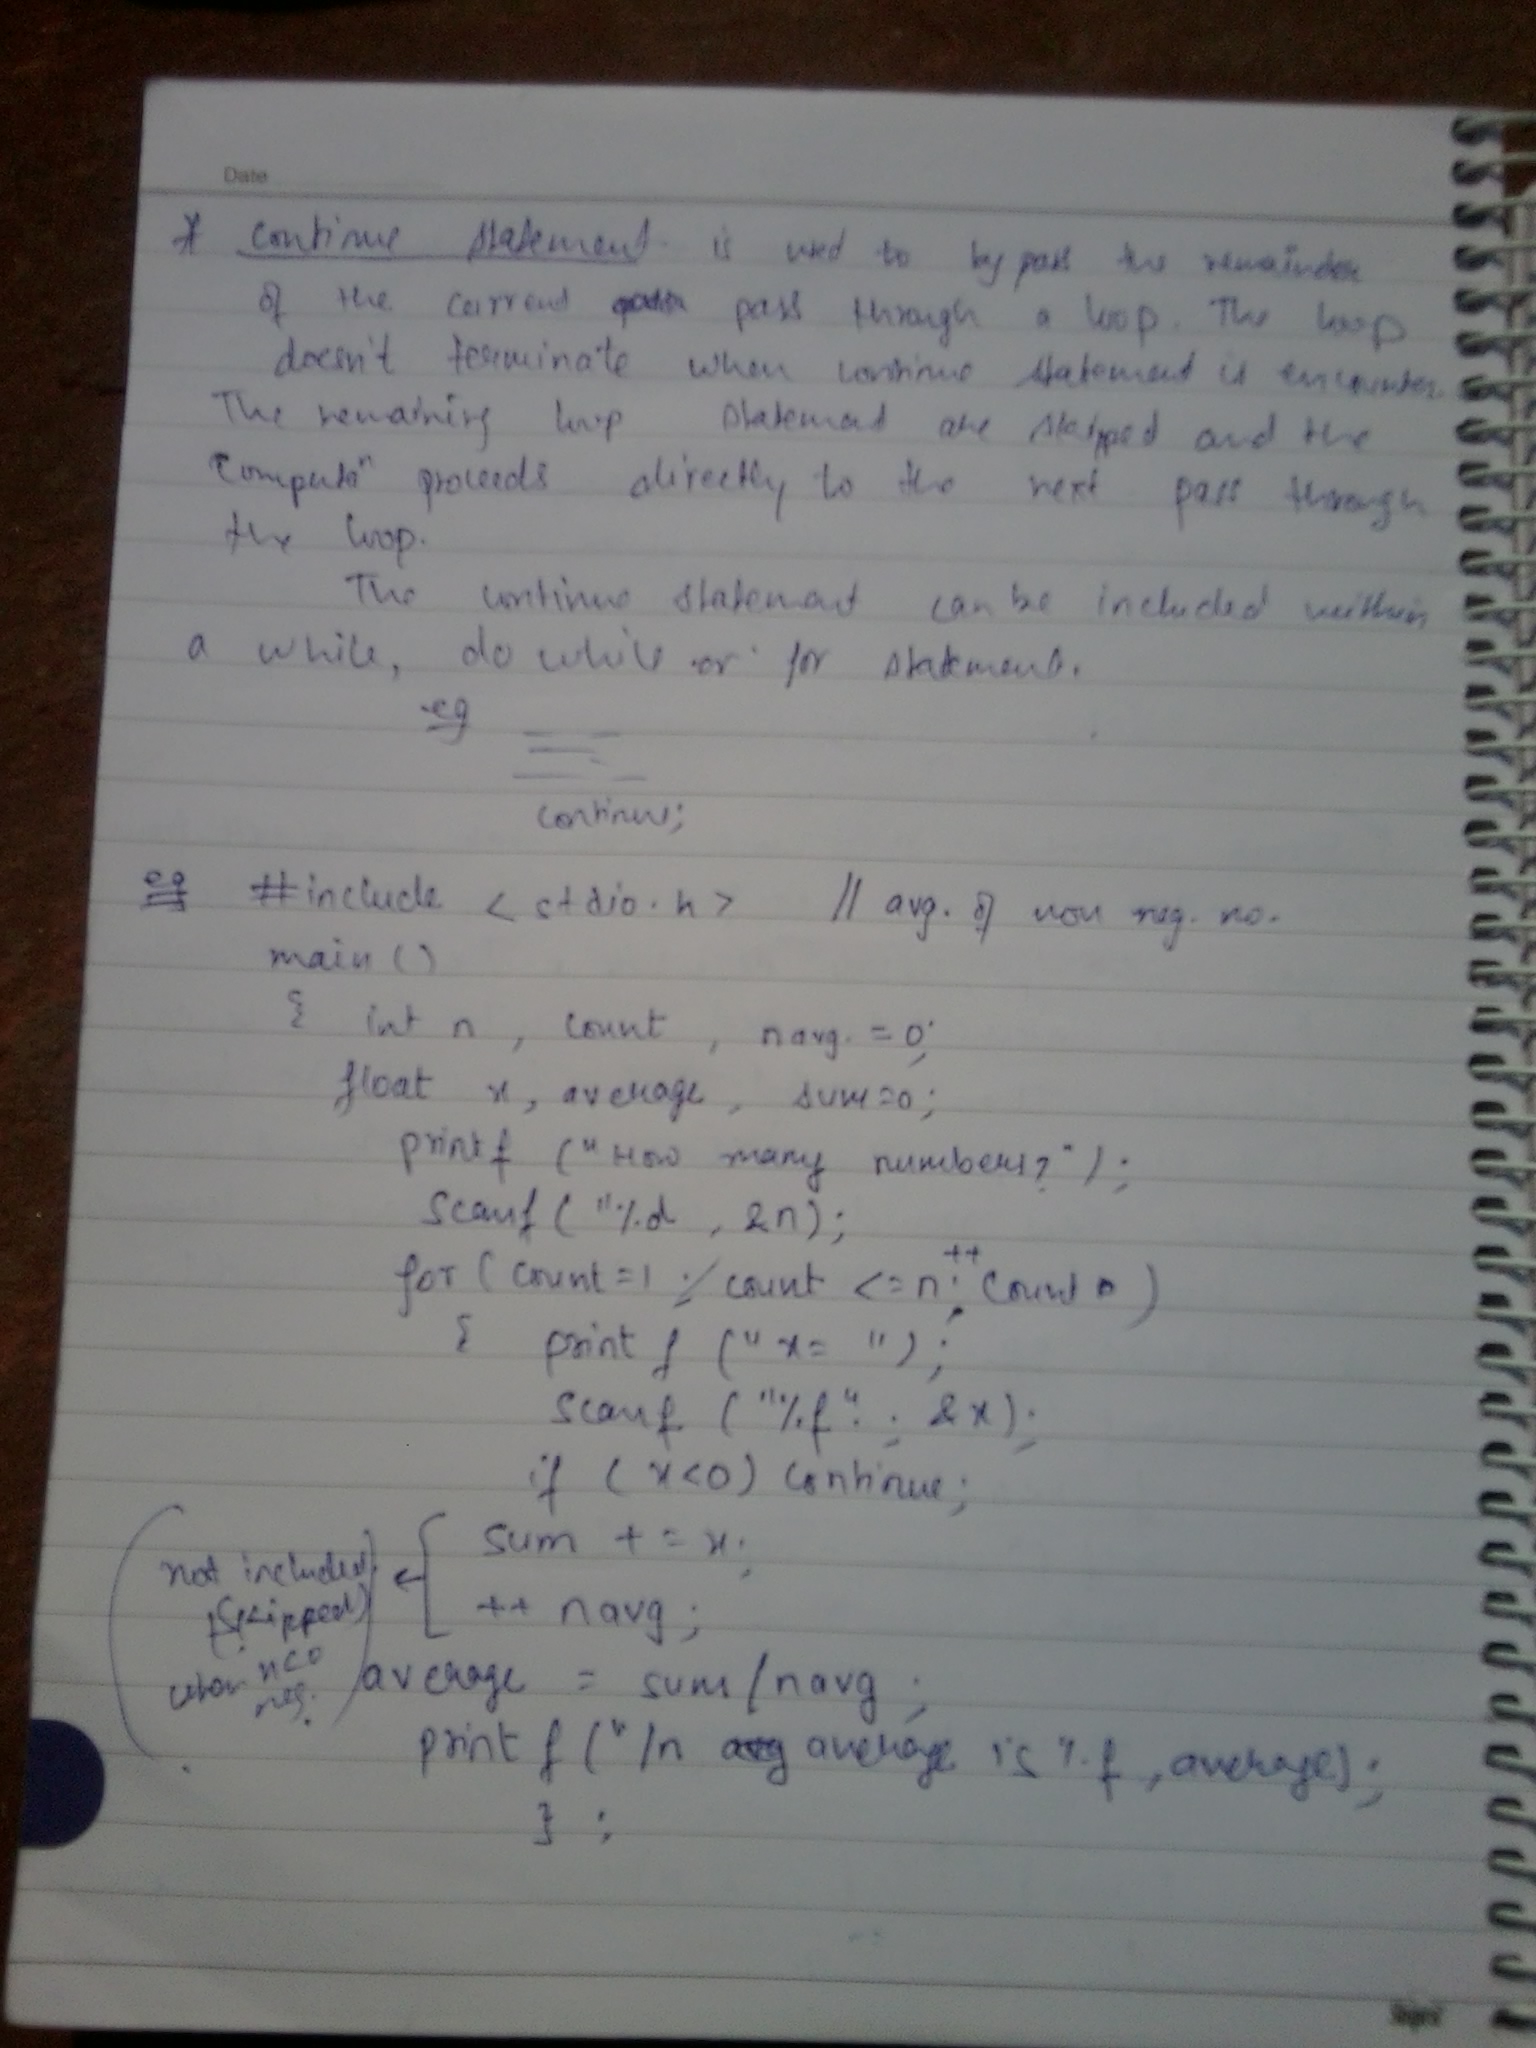 Date
* continue statement is used to by pass the remainder
of the current pass through a loop. The loop
doesn't terminate when continue statement is encounter.
The remaining loop statement are skipped and the
Computn proceeds directly to the next pass through
the loop.
The continue statement can be included within
a while, do while or for statement.
eg
continue;
eg #include <stdio.h> // avg. of non neg. no.
main ()
{ int n, count, navg. = 0;
float x, average, sum=0;
printf ("How many numbers?");
scanf ("%d , &n);
for (count=1 ; count <=n; ++count)
{ printf ("x= ");
scanf ("%f" , &x);
if (x<0) continue;
sum += x;
++ navg;
not included
(skipped)
when x<0
neg.
average = sum/navg;
printf ("/n average is %f , average);
} ;